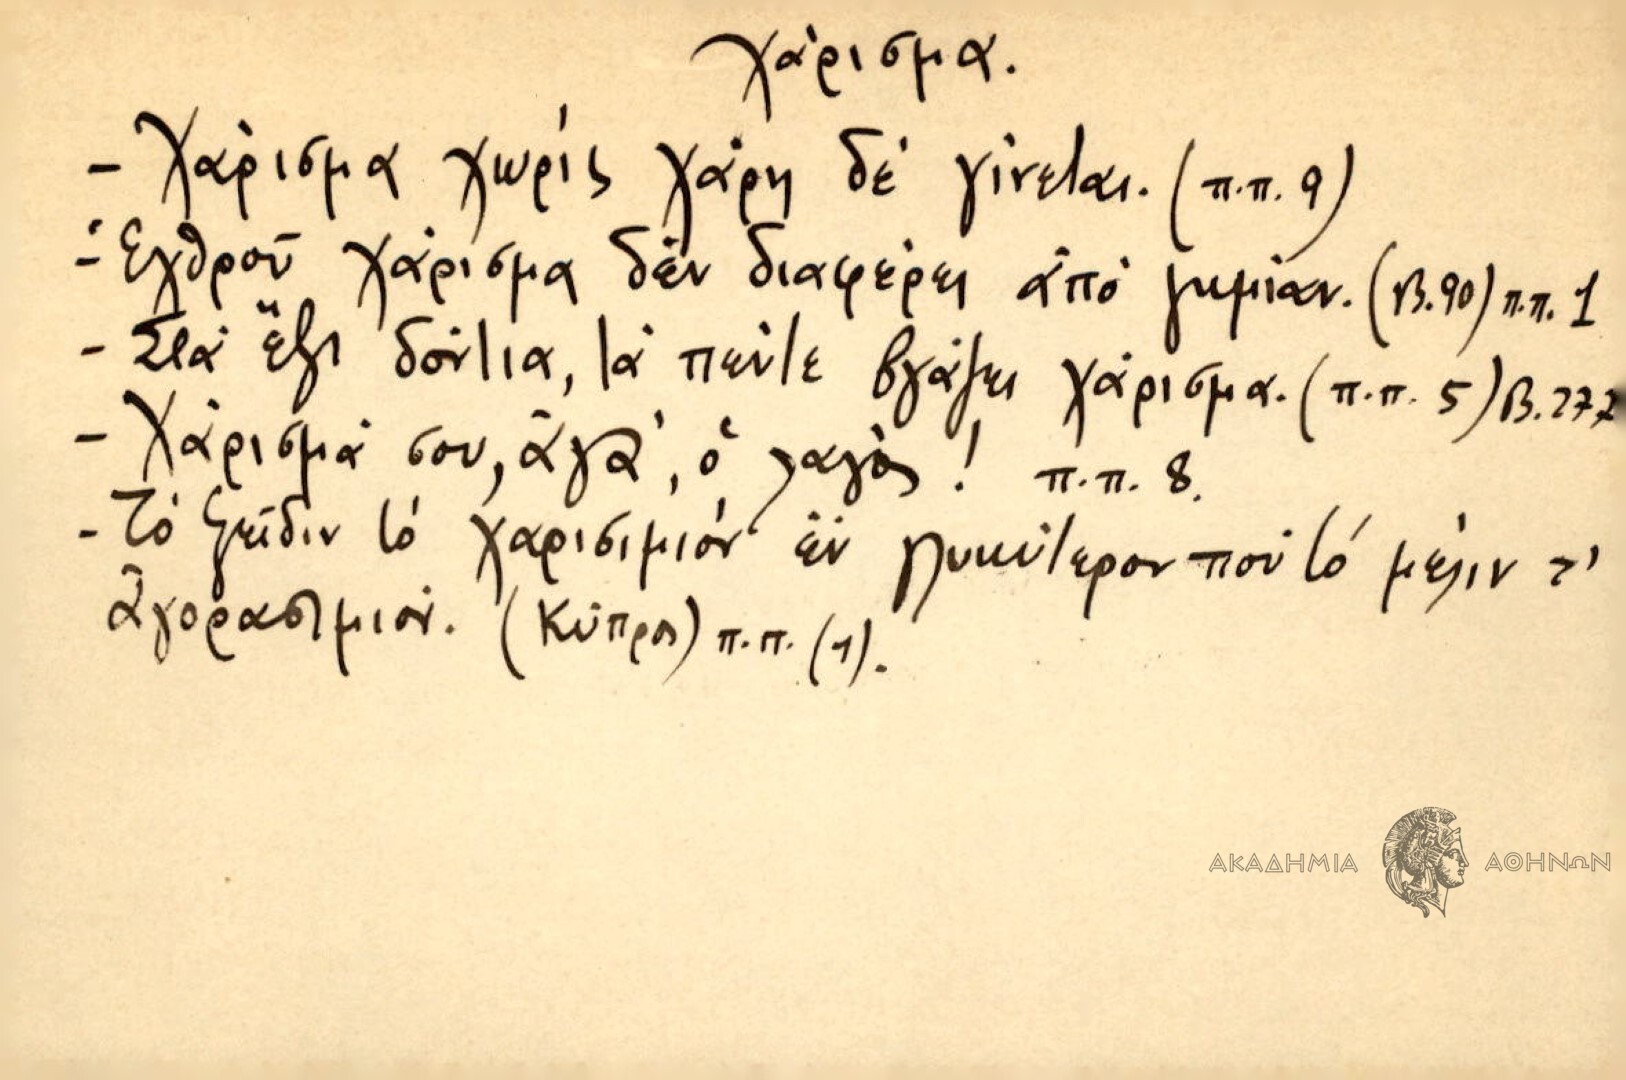 Χάρισμα.
- Χάρισμα χωρίς χάρη δέ γίνεται. (π.π. 9)
- Ἐχθροῦ χάρισμα δέν διαφέρει ἀπό ζημίαν. (Β.90) π.π. 1
- Στά ἕξι δόντια, τά πέντε βγάζει χάρισμα. (π.π. 5) Β.277
- Χάρισμά σου, ἀγᾶ, ὁ λαγός! π.π. 8.
- Τό ξείδιν τό χαρισιμιόν ἐν γλυκύτερον πού τό μέλιν τ'
ἀγορασιμιόν. (Κύπρος) π.π. (1).
ΑΚΑΔΗΜΙΑ ΑΘΗΝΩΝ